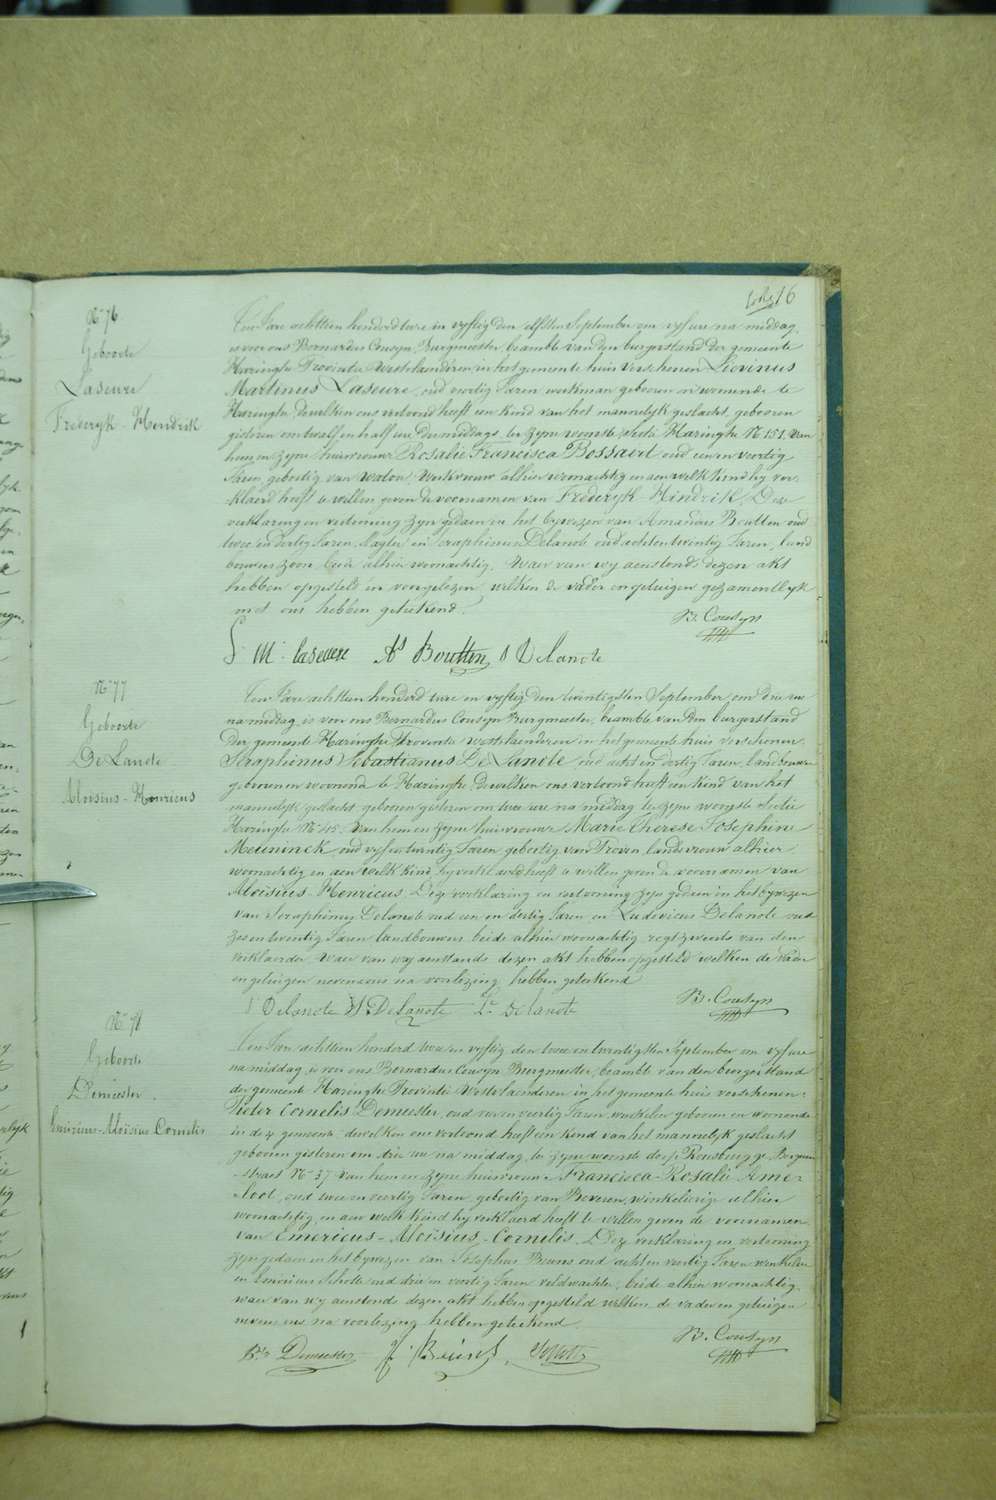 16
N° 76
Geboorte
Laseure
Frederyk - Hendrik
Ten Jare achttien honderd twee en vyftig den elfsten September om vyf ure na middag,
is voor ons Bernardus Cousyn, Burgmeester, beambte van den burgerstand der gemeente
Haringhe Provintie Westvlaenderen in het gemeente huis verschenen Livinus
Martinus Laseure, oud veertig Jaren werkman geboren en woonende te
Haringhe, dewelken ons vertoond heeft een kind van het mannelyk geslacht, geboren
gisteren om twalf en half ure des middags, te zyne woonste sectie Haringhe N° 151 van
hem en zyne huisvrouwe Rosalie Francisca Bossaert oud een en veertig
Jaren, geboortig van Watou, werkvrouw alhier woonachtig en aen welk kind hy ver-
klaerd heeft te willen geven de voornamen van Frederyk Hindrik. Deze
verklaring en vertooning zyn gedaen in het bywezen van Amandus Boutten oud
twee en dertig Jaren, en Seraphinus Delanote oud achtentwintig Jaren, land
bouwers zoon, beide alhier woonachtig. Waer van wy aenstonds dezen akt
hebben opgesteld en voorgelezen welken de vader en getuigen gezamentlyk
met ons hebben geteekend.
B. Cousyn
L. M. laseure As Boutten S Delanote
N° 77
Geboorte
De Lanote
Aloisius - Henricus
Ten Jare achttien honderd twee en vyftig den twintigsten September, om drie ure
na middag, is voor ons Bernardus Cousyn Burgmeester, beambte van den burgerstand
der gemeente Haringhe Provintie Westvlaenderen in het gemeente huis verschenen
Seraphinus Sebastianus De Lanote oud acht en dertig Jaren, landbouwer
geboren en woonende te Haringhe, dewelken ons vertoond heeft een kind van het
mannelyk geslacht, geboren gisteren om twee ure na middag te zyne woonste sectie
Haringhe N° 45. van hem en zyne huisvrouwe Marie Therese Josephine
Meuninck oud vyfentwintig Jaren, geboortig van Proven, landsvrouw alhier
woonachtig en aen welk kind hy verklaerd heeft te willen geven de voornamen van
Aloisius Henricus. Deze verklaring en vertooning zyn gedaen in het bywezen
van Seraphinus Delanote oud een en dertig Jaren en Ludovicus Delanote oud
zesentwintig Jaren landbouwers beide alhier woonachtig van den
verklaerder. Waer van wy aenstonds dezen akt hebben opgesteld welken de vader
en getuigen nevens ons na voorlezing hebben geteekend
B. Cousyn
S Delanote S. DeLanote L. Delanote
N° 78
Geboorte
Demeester
Emericus - Aloïsius Cornelis
Ten Jare achttien honderd twee en vyftig den twee en twintigsten September om vyf ure
na middag, is voor ons Bernardus Cousyn Burgmeester, beambte van den burgerstand
der gemeente Haringhe Provintie Westvlaenderen in het gemeente huis verschenen
Pieter Cornelis Demeester, oud veertig Jaren, winkelier geboren en woonende
in deze gemeente dewelken ons vertoond heeft een kind van het mannelyk geslacht
geboren gisteren om drie ure na middag, te zyne woonste Rousbrugge Bergen
straet N° 37 van hem en zyne huisvrouwe Francisca Rosalie Ame-
loot, oud twee en veertig Jaren, geboortig van Beveren, winkelierige alhier
woonachtig, en aen welk kind hy verklaerd heeft te willen geven de voornamen
van Emericus - Aloïsius - Cornelis. Deze verklaring en vertooning
zyn gedaen in het bywezen van Josephus Bruns oud acht en veertig Jaren winkelier
en oud drie en veertig Jaren veldwachter, beide alhier woonachtig,
waer van wy aenstonds dezen akt hebben opgesteld welken de vader en getuigen
nevens ons na voorlezing hebben geteekend.
B. Cousyn
Demeester